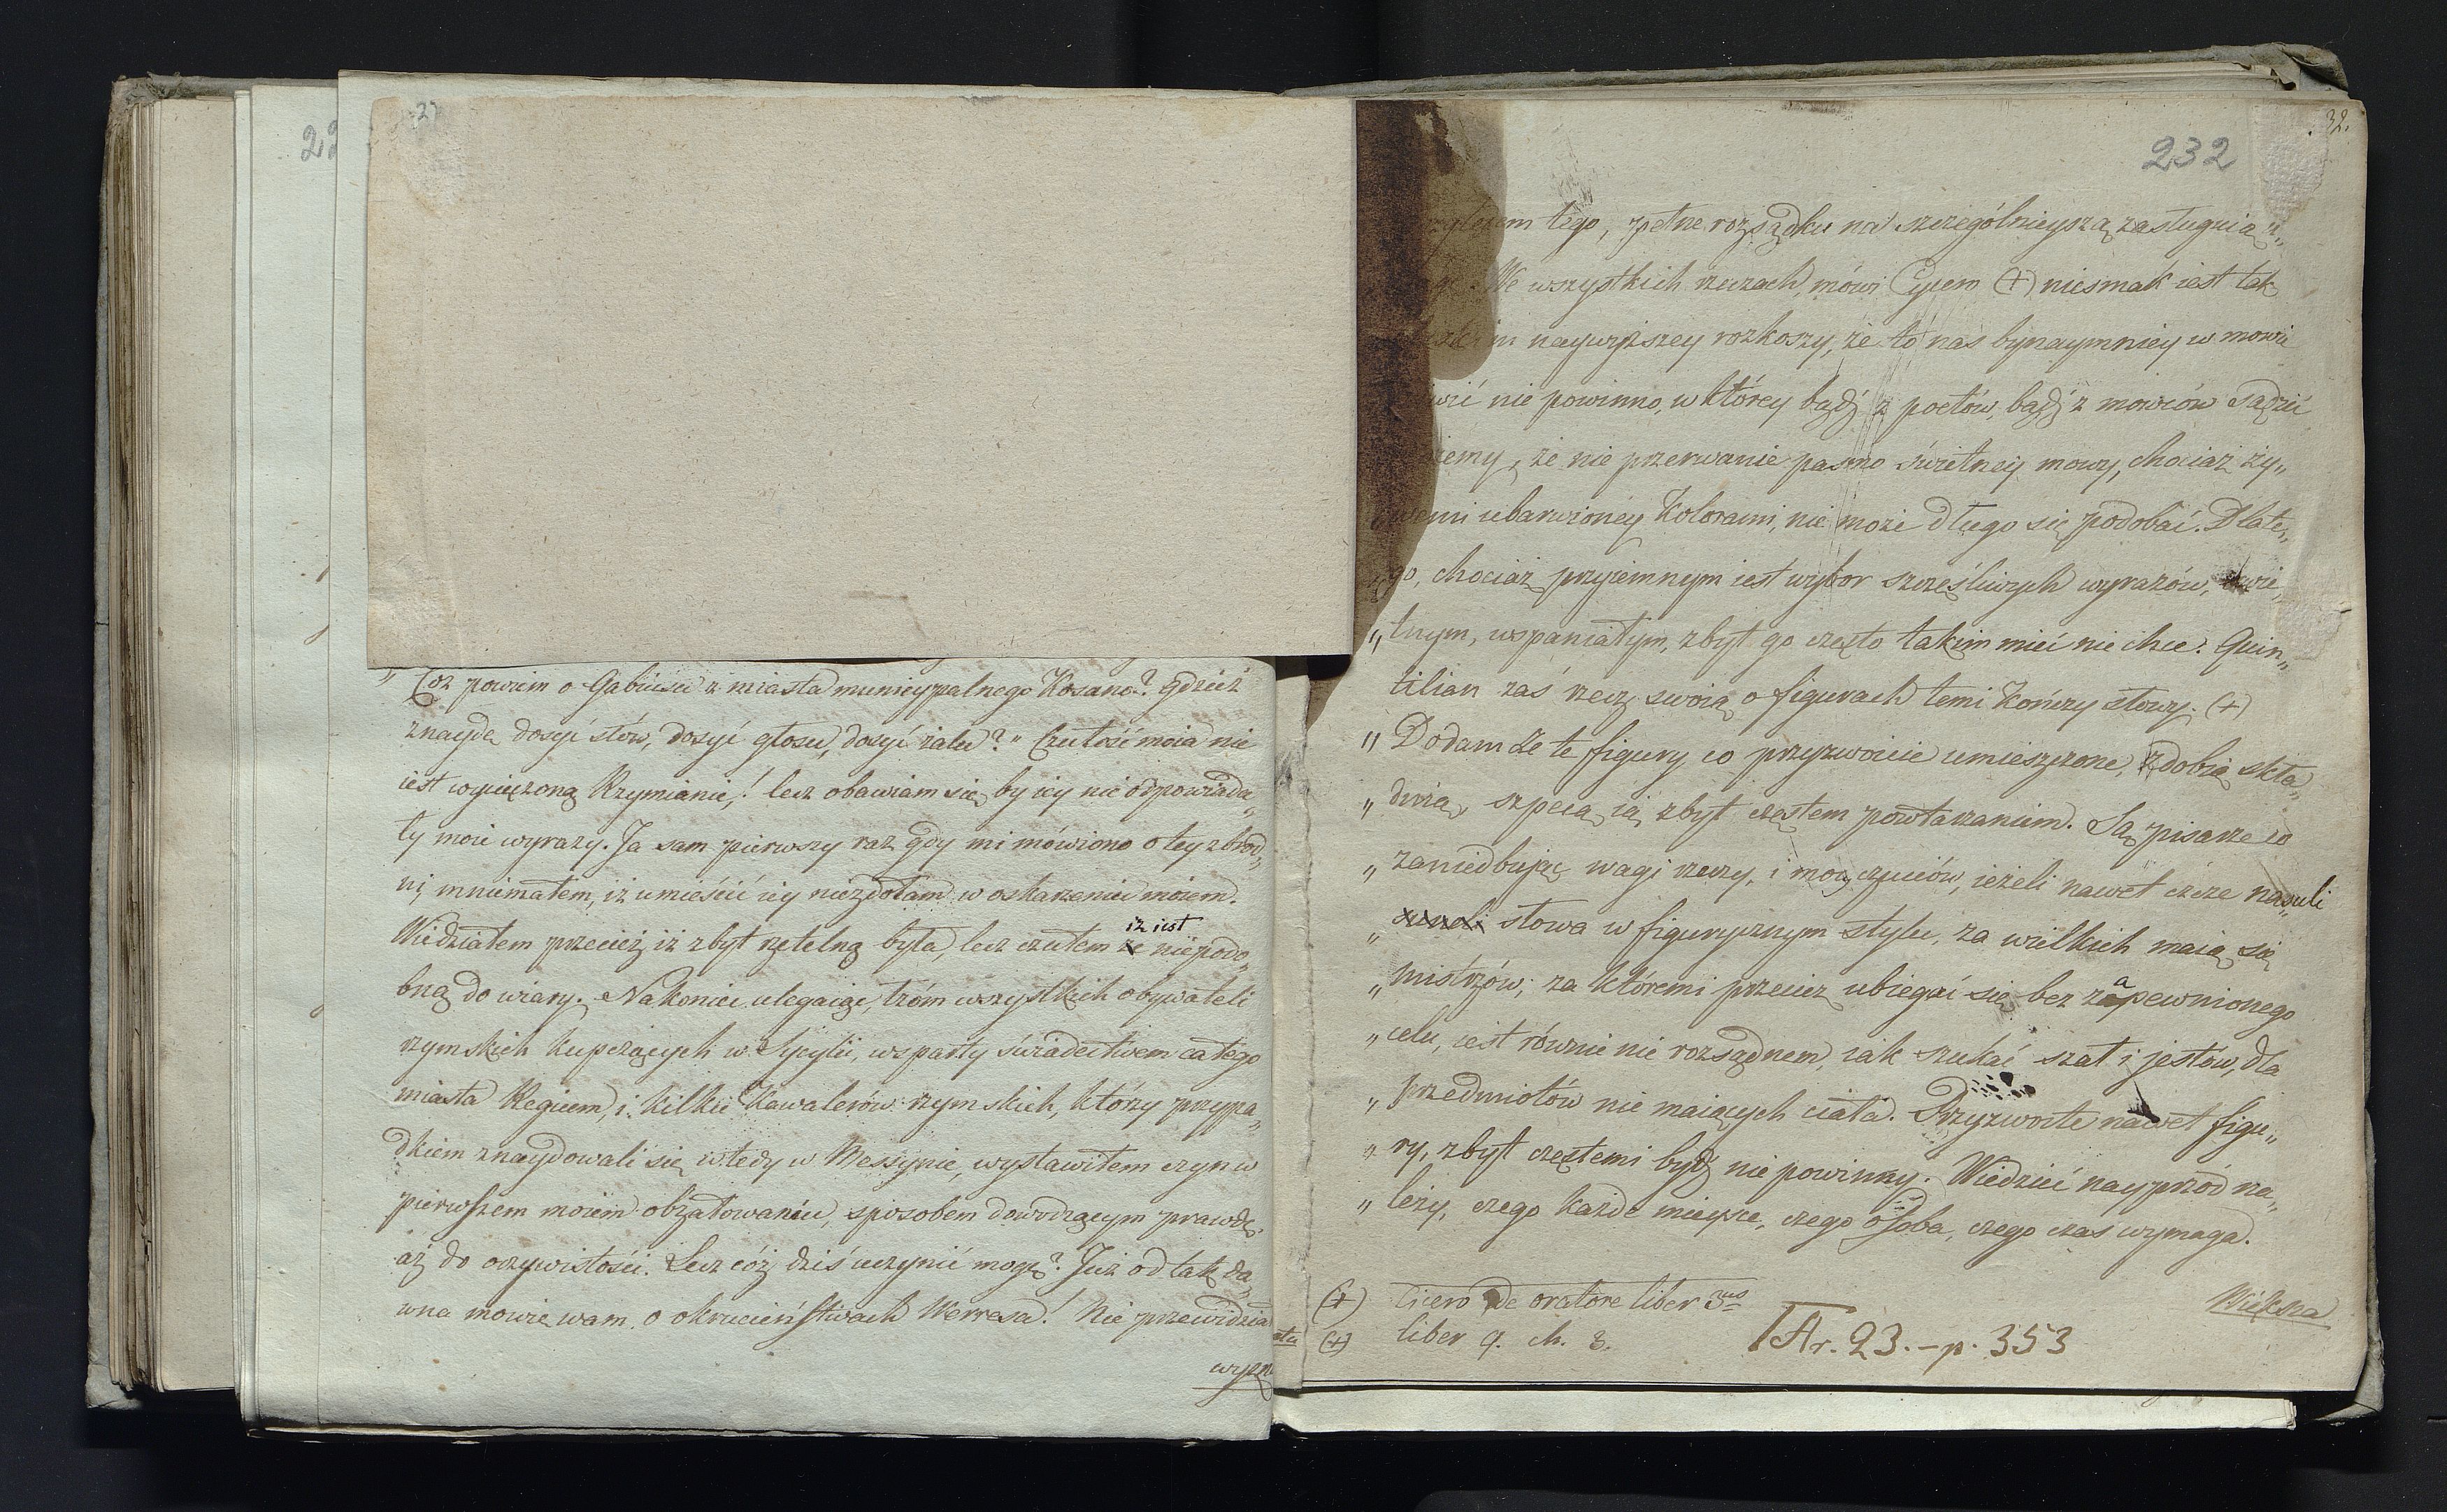 „ Coż powiem o Gabiuszu z miasta municypalnego Kosano? Gdzież
znaydę dosyć słów, dosyć głosu, dosyć żalu?" Czułość moia nie
iest wycięzoną Rzymianie,! lecz obawiam się by iey nie odpowiada„
ły moie wyrazy. Ja sam pierwszy raz gdy mi mówiono o tey zbrod„
ni, mniemałem, iż umieścić iey niezdołam w oskarzeniu moiem.
Wiedziałem przecież iż zbyt rzetelną była, lecz czułem iż iest niepodo„
bną do wiary. Nakoniec ulegaiąc, łzóm wszystkich obywateli
rzymskich kupczących w Sycylii, wsparty świadectwem całego
miasta Regium, i kilku Kawalerów rzymskich, którzy przypa„
dkiem znaydowali się wtedy w Messynie, wystawiłem czyn w
pierwszem moiem obżałowaniu, sposobem dowodzącym prawdę,
aż do oczywistości. Lecz cóż dziś uczynić mogę? Już od tak da„
wna mowię wam o okrucieństwach Werresa! Nie przewidzia
232
32.
tego, pełne rozsądku na szczególnieyszą zasługuią
We wszystkich rzeczach, mówi Cycero (+) niesmak iest tak
naywyższey rozkoszy, że to nas bynaymniey w mowie
nie powinno, w którey bądź z poetów, bądź z mowców sądzić
że nie przerwanie pasmo świetney mowy, chociaż ży„
wemi ubarwioney kolorami, nie może długo się podobać. Dlate„
„go, chociaż przyiemnym iest wybor szczęśliwych wyrazów, świe„
„tnym, wspaniałym, zbyt go często takim mieć nie chce. Quin„
tilian zaś rzecz swoią o figurach temi kończy słowy. (+)
„ Dodam że te figury co przyzwoicie umieszczone, zdobią skła„
„ dnią, szpecą ią zbyt częstem powtarzaniem. Są pisarze co
„ zaniedbuiąc wagi rzeczy, i mocy czuciów, ieżeli nawet czcze nasuli
„ słowa w figurycznym stylu, za wielkich maią się
„ mistrzów; za któremi przecież ubiegać się bez zapewnionego
„ celu, iest równie nie rozsądnem, iak szukać szat i jestów, dla
„ przedmiotów nie maiących ciała. Przyzwoite nawet figu„
„ ry, zbyt częstemi bydź nie powinny. Wiedzieć nayprzód na„
„ leży, czego każde mieysce, czego osoba, czego czas wymaga.
Większa
(+) Cicero de oratore liber 3us
(+) liber 9. ch. 3.
TAr. 23. - p. 353